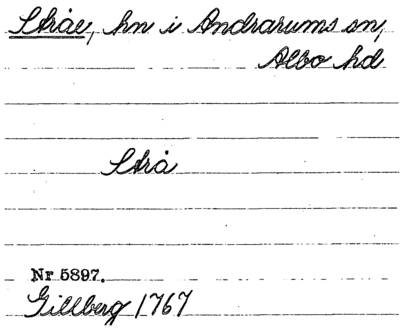 Stråe, hn i Andrarums sn,
Albo hd
Strå
Nr 5897.
Gillberg 1767